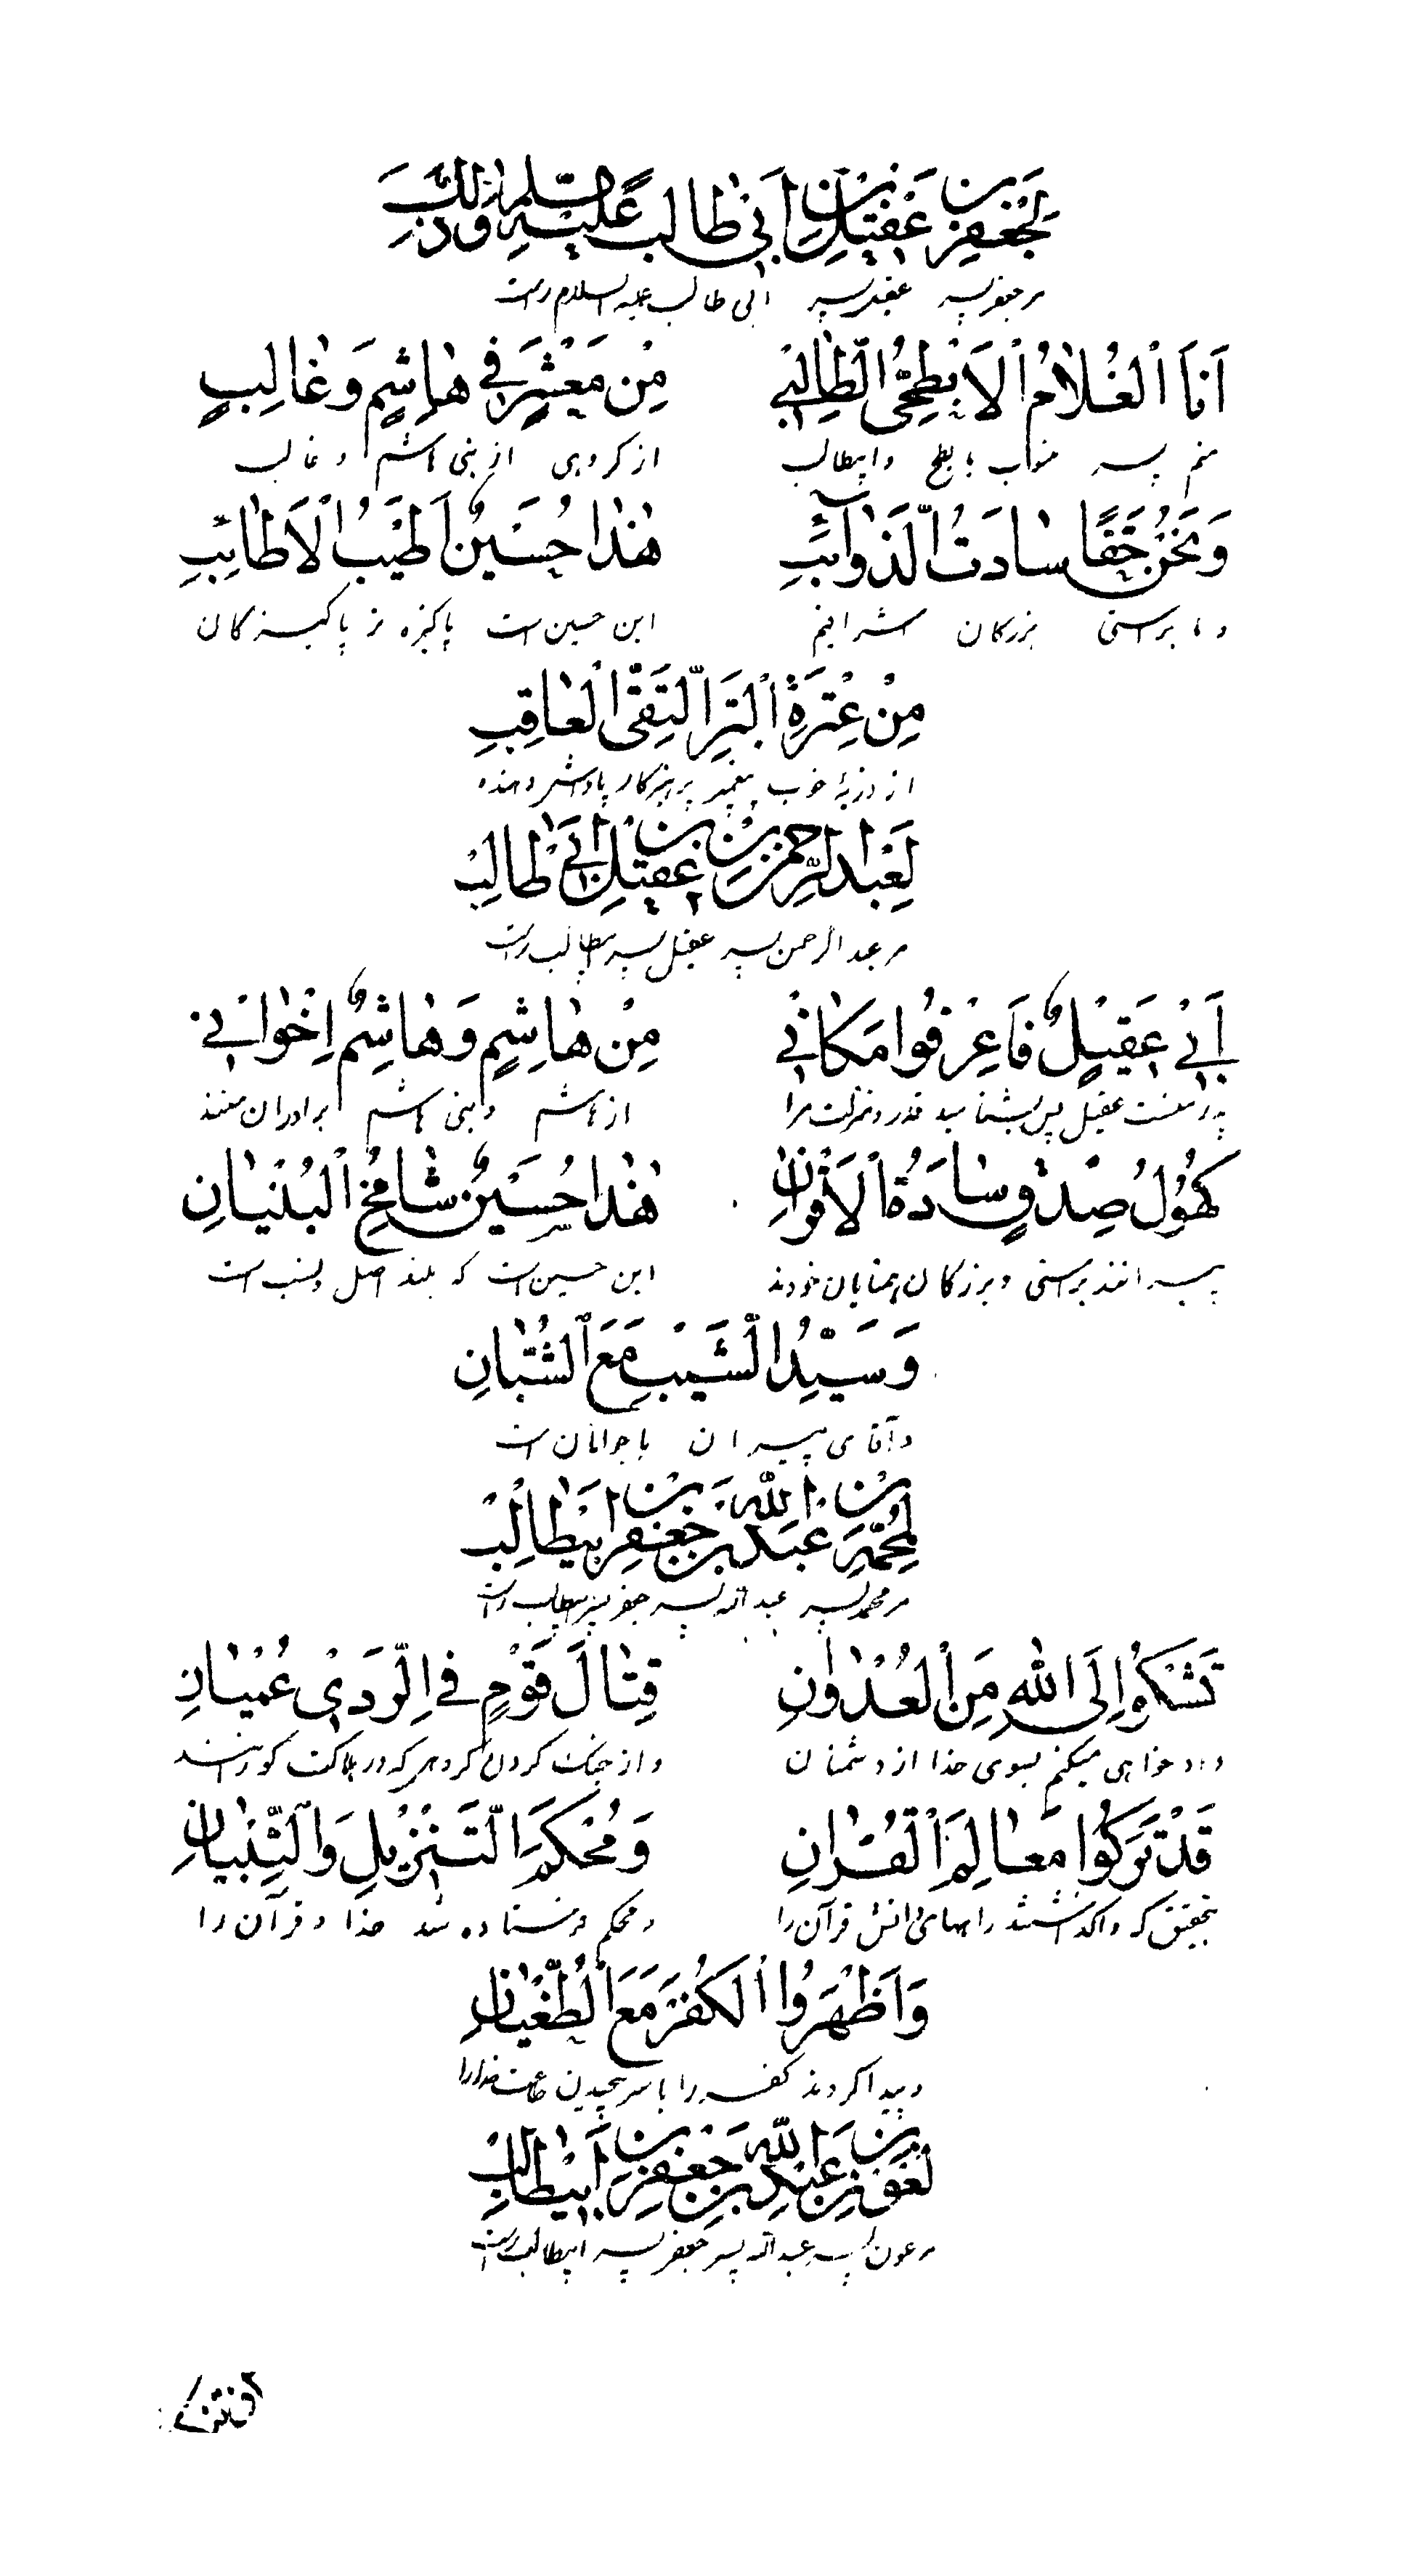 لِجَعْفَرِ بْنِ عَقيٖلِ بْنِ اَبیٖ طٰالِب عَلَيْهِ
مر جعفر پسر عقیل پسر ابی طالب علیه السلام راست
اَنَا الْغُلاٰمُ الْاَبْطَحِیُّ الطّٰالِبیٖ مِنْ مَعْشَرٍ فی هٰاشِمٍ وَ غٰالِبٍ
منم پسر منسوب بابطح وابیطالب از کروهی از بنی هاشم و غالب
وَنَحْنُ حَقًّا سٰادَتُ الذَّوٰآئِبِ هٰذٰا حُسَيْنٌ اَطْيَبُ الْاَطٰائِبِ
و ما براستی بزرکان اشرافیم این حسین است پاکیزه تر پاکیزه کان
مِنْ عِتْرَةِ الْبَرِّ التَّقِیِّ الْعٰاقِبِ
از ذریهٔ خوب پیغمبر پرهیزکار
لِعَبْدِ الرَّحْمٰنِ بْنِ عَقيٖلِ بْنِ اَبیٖ طٰالِبْ
مر عبد الرحمن پسر عقیل پسر ابیطالب راست
اَبیٖ عَقيٖلٌ فَاعْرِفُوا مَكٰانیٖ مِنْ هٰاشِمٍ وَ هٰاشِمٌ اِخْوٰانیٖ
پدر منست عقیل پس بشناسید قدر ومنزلت مرا از هاشم و بنی هاشم برادران منند
كُهُوُلُ صِدْقٍ سٰادَةُ الْاَقْرٰانِ هٰذٰا حُسَيْنٌ شٰامِخُ الْبُنْيٰانِ
پیرانند براستی و بزرکان همتایان خودند این حسین است که بلند اصل و نسب است
وَسَيِّدُ الشَّيْبِ مَعَ الشُّبّٰانِ
وآقای پیران با جوانان است
لِمُحَمَّدِ بْنِ عَبْدِ اللّٰهِ بْنِ جَعْفَرِ بْنِ اَبيٖطٰالِبْ
مر محمد پسر عبد الله پسر جعفر پسر ابیطالب راست
نَشْكُوا اِلَی اللّٰهِ مِنَ الْعُدْوٰانِ قِتٰالَ قَوْمٍ فی الرَّدیٰ عُمْيٰانِ
داد خواهی میکنم بسوی خدا از دشمنان و از جنک کردن کروهی که در هلاکت کورانند
قَدْ تَرَكُوا مَعٰالِمَ الْقُرْاٰنِ وَ مُحْكَمَ التَّنْزيٖلِ وَ التِّبْيٰانِ
بتحقیق که واکذاشتند راههای دانش قرآن را و محکم فرستاده شد خدا و قرآن را
وَ اَظْهَرُوا الْكُفْرَ مَعَ الطُّغْيٰانِ
وپیدا کردند کفر را با سرپیچیدن طاعت خدا را
لِعَوْنِ بْنِ عَبْدِ اللّٰهِ بْنِ جَعْفَرِ بْنِ اَبيٖطٰالِبْ
مر عون پسر عبد الله پسر جعفر پسر ابیطالب راست